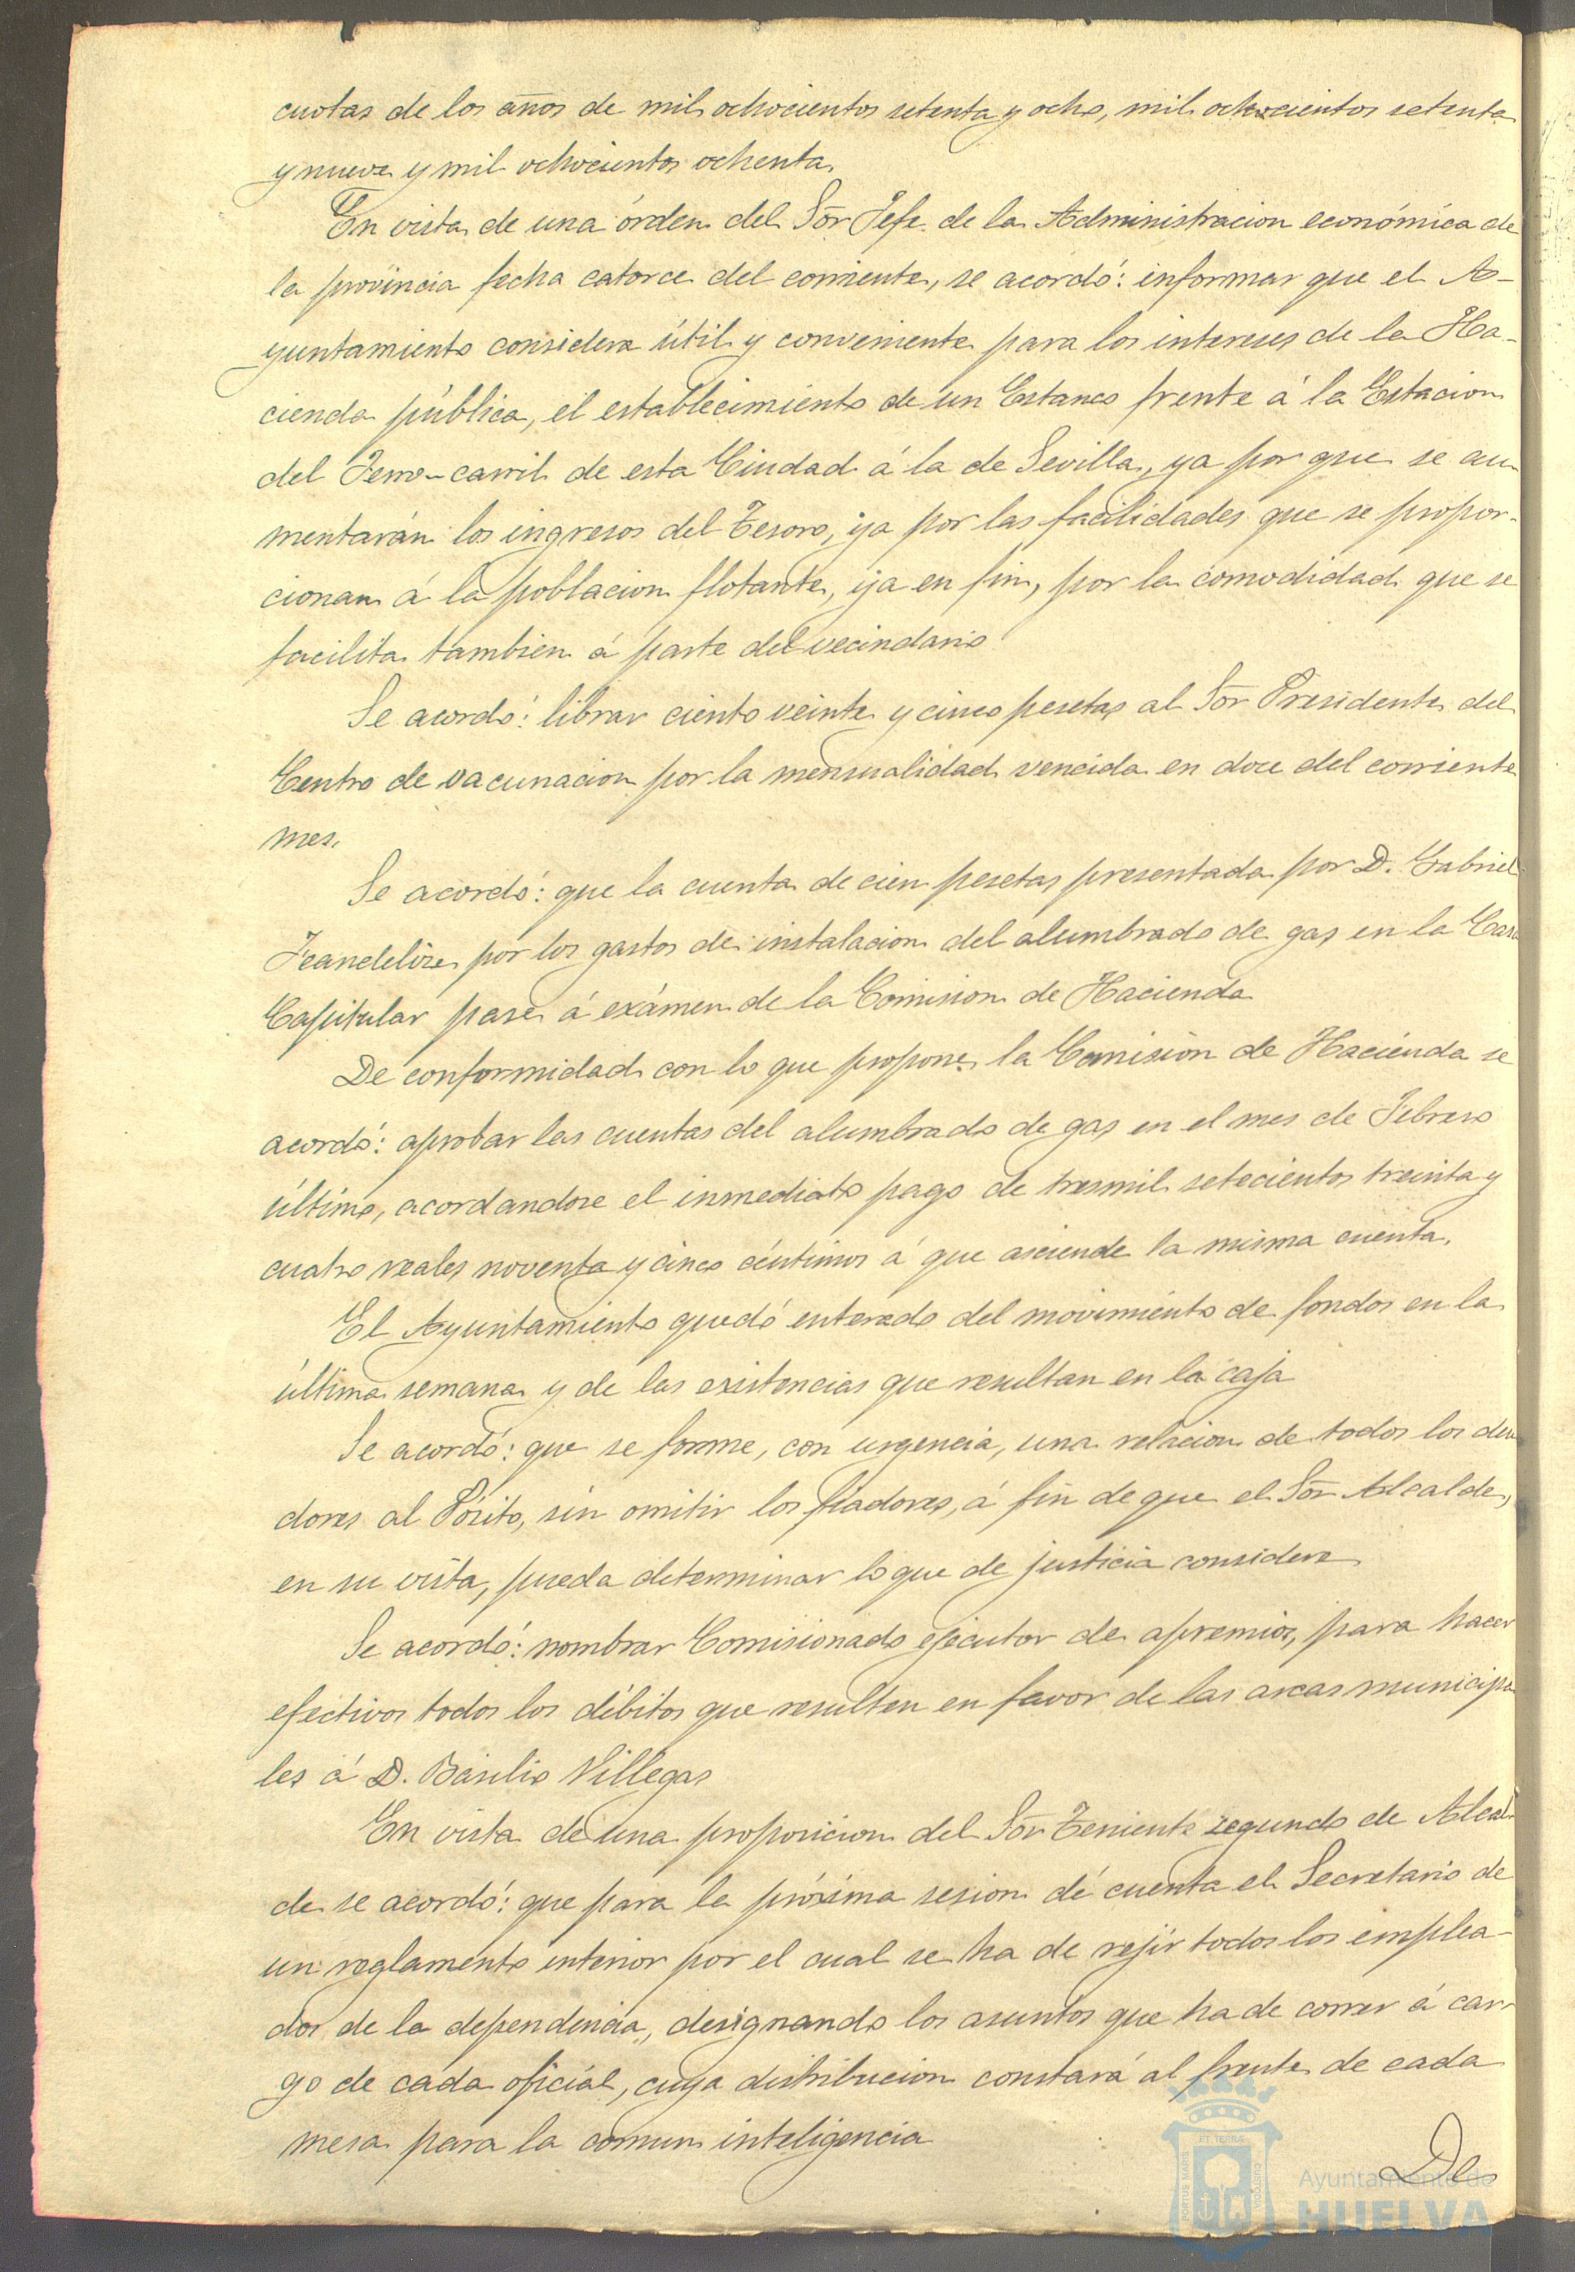 cuotas de los años de mil ochocientos setenta y ocho, mil ochocientos setenta
y nueve y mil ochocientos ochenta.
En vista de una órden del Sõr Jefe de la Administracion económica de
la provincia fecha catorce del corriente, se acordó: informar que el A-
yuntamiento considera útil y conveniente para los intereses de la Ha-
cienda pública, el establecimiento de un Estanco frente á la Estacion
del Ferro-carril de esta Ciudad á la de Sevilla, ya por que se au-
mentarán los ingresos del Tesoro, ya por las facilidades que se propor-
cionan á la poblacion flotante, ya en fin, por la comodidad que se
facilita tambien á parte del vecindario
Se acordó: librar ciento veinte y cinco pesetas al Sõr Presidente del
Centro de vacunacion por la mensualidad vencida en doce del corriente
mes.
Se acordó: que la cuenta de cien pesetas presentada por D. Gabriel
Jeandelize por los gastos de instalacion del alumbrado de gas en la Casa
Capitular pase á exámen de la Comision de Hacienda
De conformidad con lo que propone la Comision de Hacienda se
acordó: aprobar las cuentas del alumbrado de gas en el mes de Febrero
último, acordandose el inmediato pago de tresmil setecientos treinta y
cuatro reales noventa y cinco céntimos á que asciende la misma cuenta.
El Ayuntamiento quedó enterado del movimiento de fondos en la
última semana y de las existencias que resultan en la caja
Se acordó: que se forme, con urgencia, una relacion de todos los deu
dores al Pósito, sin omitir los fiadores, á fin de que el Sõr Alcalde,
en su vista, pueda determinar lo que de justicia considere
Se acordó: nombrar Comisionado ejecutor de apremios, para hacer
efectivos todos los débitos que resulten en favor de las arcas municipa
les á D. Basilio Villegas
En vista de una proposicion del Sõr Teniente segundo de Alcal-
de se acordó: que para la próxima sesion dé cuenta el Secretario de
un reglamento interior por el cual se ha de rejir todos los emplea-
dos de la dependencia, designando los asuntos que ha de correr á car-
go de cada oficial, cuya distribucion constará al frente de cada
mesa para la comun inteligencia
De
Ayuntamiento de
HUELVA
PORTUS MARIS
ET TERRÆ
CUSTODIA